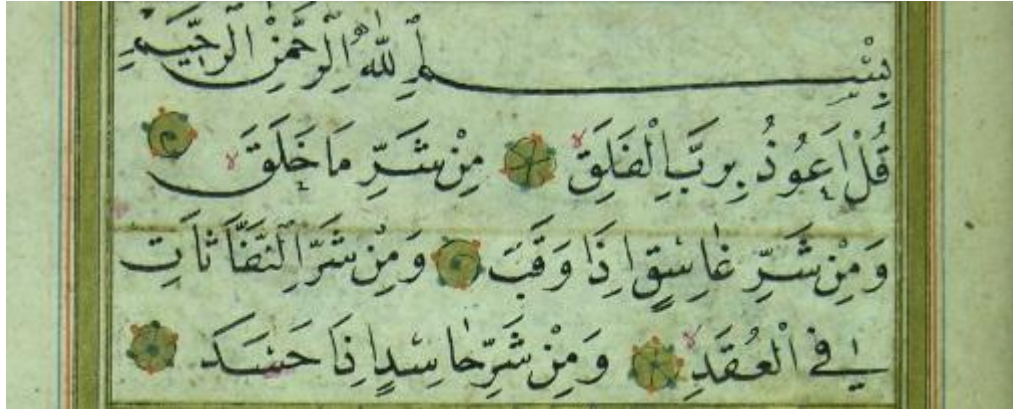 بِسْمِ اللّٰهِ الرَّحْمٰنِ الرَّحِيمِ
قُلْ اَعُوذُ بِرَبِّ الْفَلَقِ لا مِنْ شَرِّ مَا خَلَقَ لا
وَمِنْ شَرِّ غَاسِقٍ اِذَا وَقَبَ وَمِنْ شَرِّ النَّفَّاثَاتِ
فِي الْعُقَدِ لا وَمِنْ شَرِّ حَاسِدٍ اِذَا حَسَدَ